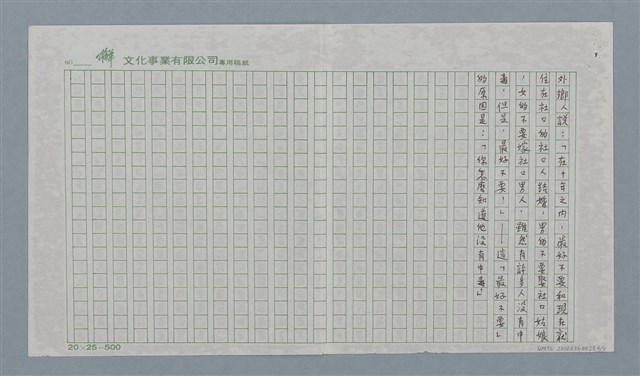 NO
文化事業有限公司專用稿紙
外鄉人說：「在十年之內，最好不要和現在就
住在社口的社口人結婚，男的不要娶社口姑娘
，女的不要嫁社口男人，雖然有許多人沒有中
毒，但是，最好不要！」——這「最好不要」
的原因是：「你怎麼知道他沒有中毒」
20×25=500